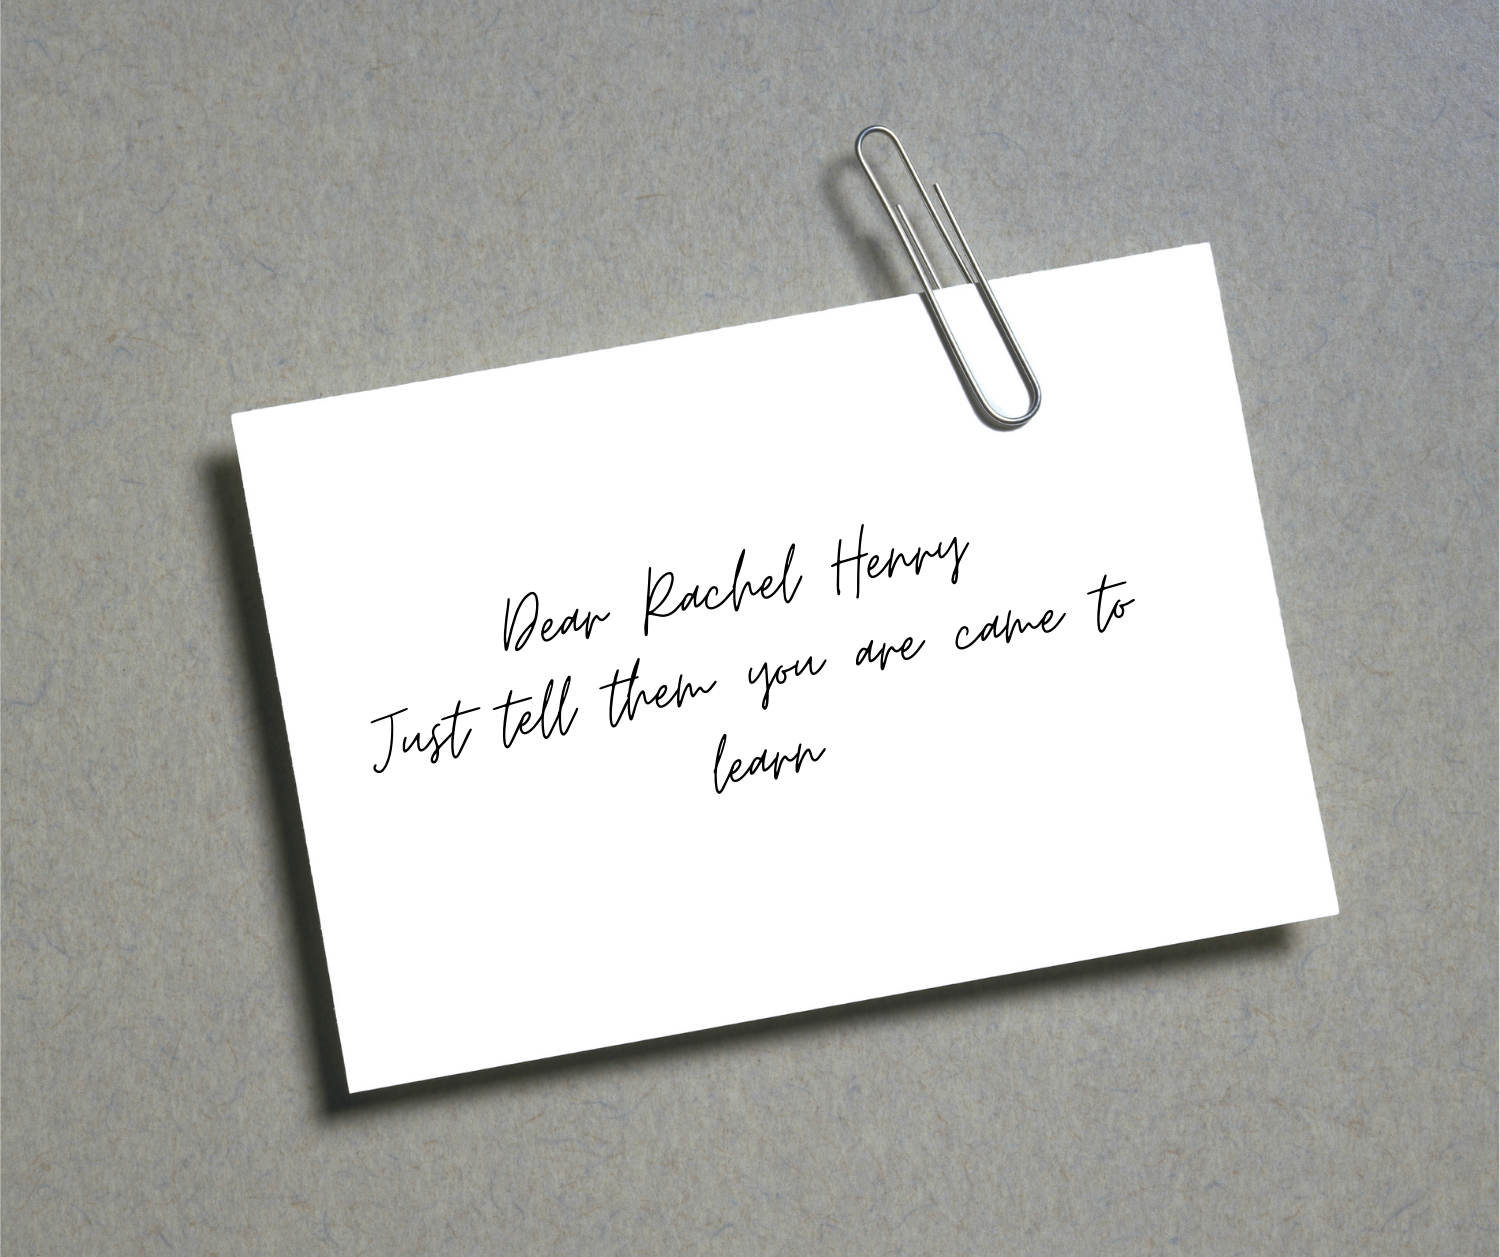 Dear Rachel Henry
Just tell them you are came to
learn